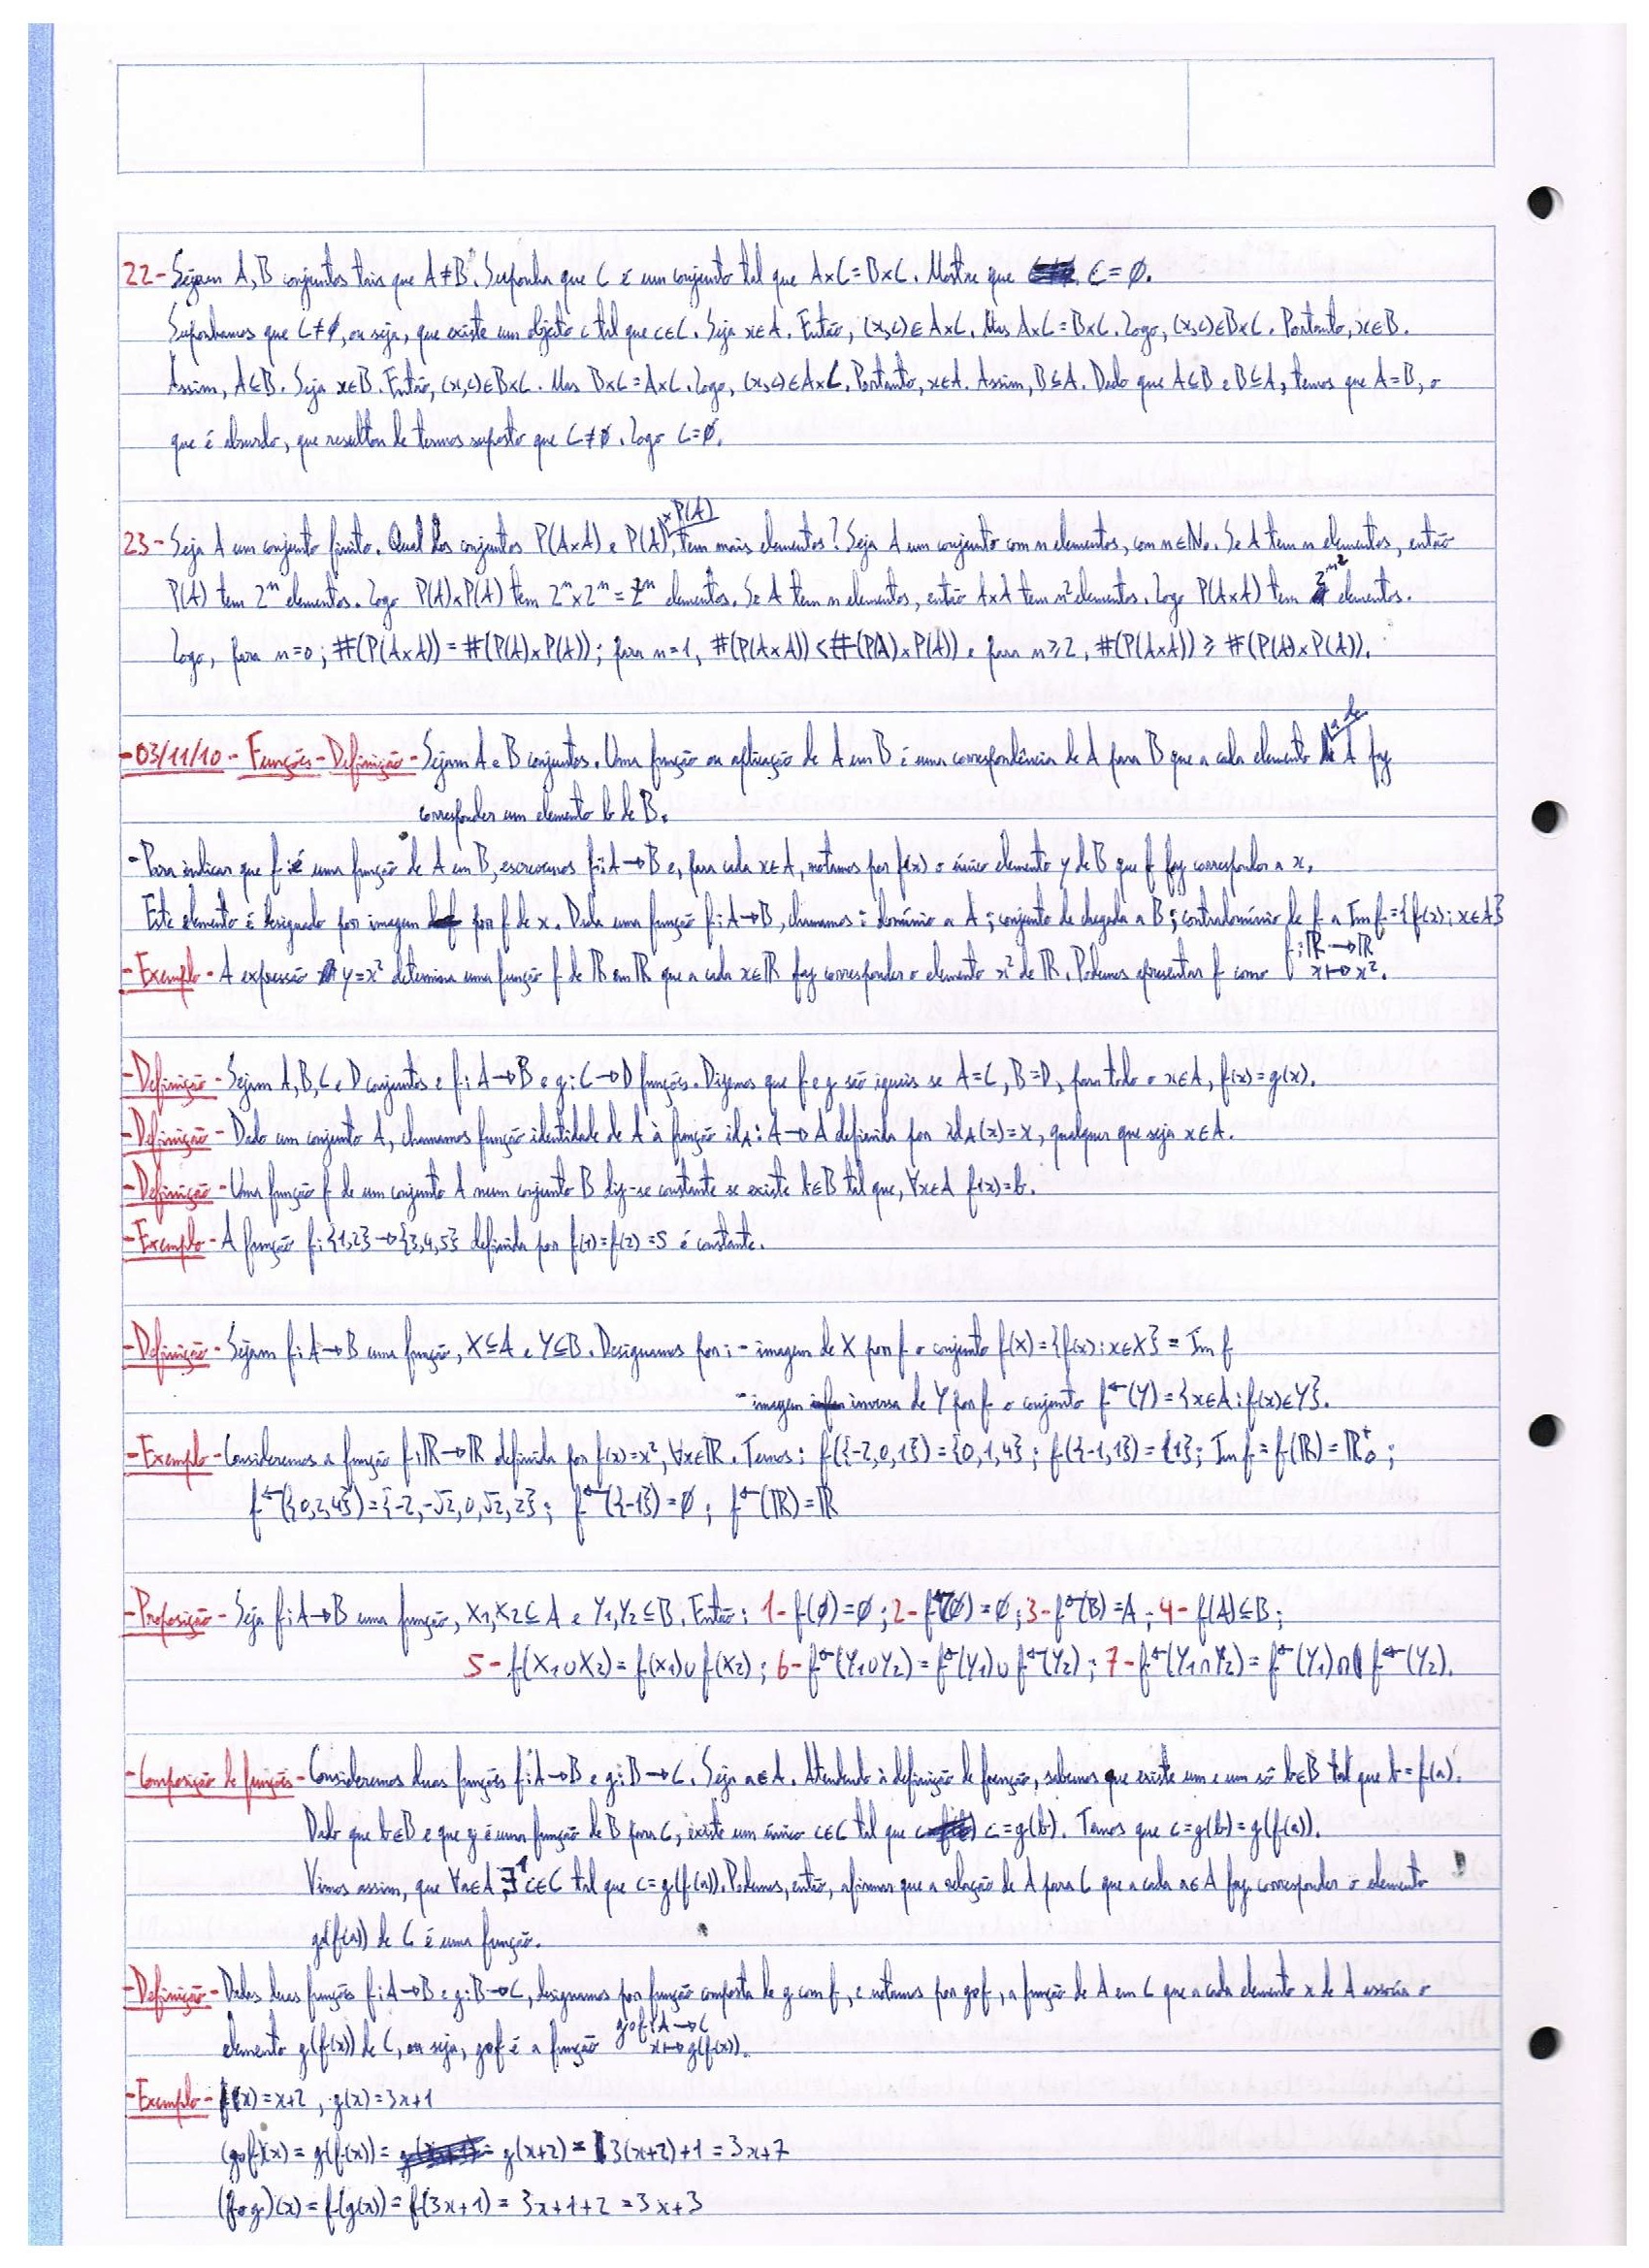 22- Sejam A, B conjuntos tais que A ≠ B. Suponha que C é um conjunto tal que A×C = B×C. Mostre que C = ∅.
Suponhamos que C ≠ ∅, ou seja, que existe um objeto c tal que c∈C. Seja x∈A. Então, (x,c) ∈ A×C. Mas A×C = B×C. Logo, (x,c)∈B×C. Portanto, x∈B.
Assim, A⊆B. Seja x∈B. Então, (x,c)∈B×C. Mas B×C = A×C. Logo, (x,c)∈A×C. Portanto, x∈A. Assim, B⊆A. Dado que A⊆B e B⊆A, temos que A=B, o
que é absurdo, que resultou de termos suposto que C≠∅. Logo C=∅.
23- Seja A um conjunto finito. Qual dos conjuntos P(A×A) e P(A)×P(A), tem mais elementos? Seja A um conjunto com n elementos, com n∈N₀. Se A tem n elementos, então
P(A) tem 2ⁿ elementos. Logo P(A)×P(A) tem 2ⁿ×2ⁿ = elementos. Se A tem n elementos, então A×A tem n² elementos. Logo P(A×A) tem elementos.
Logo, para n=0; #(P(A×A)) = #(P(A)×P(A)); para n=1, #(P(A×A)) < #(P(A)×P(A)) e para n≥2, #(P(A×A)) ≥ #(P(A)×P(A)).
-03/11/10 - Funções - Definição - Sejam A e B conjuntos. Uma função ou aplicação de A em B é uma correspondência de A para B que a cada elemento a de A faz
corresponder um elemento b de B.
- Para indicar que f é uma função de A em B, escrevemos f:A→B e, para cada x∈A, notamos por f(x) o único elemento y de B que f faz corresponder a x.
Este elemento é designado por imagem por f de x. Dada uma função f:A→B, chamamos: domínio a A; conjunto de chegada a B; contradomínio de f a Im f = {f(x): x∈A}
- Exemplo - A expressão y=x² determina uma função f de ℝ em ℝ que a cada x∈ℝ faz corresponder o elemento x² de ℝ. Podemos apresentar f como f:ℝ→ℝ x↦x².
- Definição - Sejam A, B, C e D conjuntos e f:A→B e g:C→D funções. Dizemos que f e g são iguais se A=C, B=D, para todo o x∈A, f(x)=g(x).
- Definição - Dado um conjunto A, chamamos função identidade de A à função id_A: A→A definida por id_A(x)=x, qualquer que seja x∈A.
- Definição - Uma função f de um conjunto A num conjunto B diz-se constante se existe b∈B tal que, ∀x∈A f(x)=b.
- Exemplo - A função f:{1,2}→{3,4,5} definida por f(1)=f(2)=5 é constante.
- Definição - Sejam f:A→B uma função, X⊆A e Y⊆B. Designamos por: - imagem de X por f o conjunto f(X)={f(x):x∈X} = Im f
- imagem inversa de Y por f o conjunto f←(Y)={x∈A:f(x)∈Y}.
- Exemplo - Consideremos a função f:ℝ→ℝ definida por f(x)=x², ∀x∈ℝ. Temos: f({-2,0,1})={0,1,4}; f({-1,1})={1}; Im f = f(ℝ)=ℝ₀⁺;
f←({0,2,4})={-2,-√2,0,√2,2}; f←({-1})=∅; f←(ℝ)=ℝ
- Proposição - Seja f:A→B uma função, X₁,X₂⊆A e Y₁,Y₂⊆B. Então: 1- f(∅)=∅; 2- f←(∅)=∅; 3- f←(B)=A; 4- f(A)⊆B;
5- f(X₁∪X₂)=f(X₁)∪f(X₂); 6- f←(Y₁∪Y₂)=f←(Y₁)∪f←(Y₂); 7- f←(Y₁∩Y₂)=f←(Y₁)∩f←(Y₂).
- Composição de funções - Consideremos duas funções f:A→B e g:B→C. Seja a∈A. Atendendo à definição de função, sabemos que existe um e um só b∈B tal que b=f(a).
Dado que b∈B e que g é uma função de B para C, existe um único c∈C tal que c=g(b). Temos que c=g(b)=g(f(a)).
Vimos assim, que ∀a∈A ∃¹ c∈C tal que c=g(f(a)). Podemos, então, afirmar que a relação de A para C que a cada a∈A faz corresponder o elemento
g(f(a)) de C é uma função.
- Definição - Dadas duas funções f:A→B e g:B→C, designamos por função composta de g com f, e notamos por g∘f, a função de A em C que a cada elemento x de A associa o
elemento g(f(x)) de C, ou seja, g∘f é a função g∘f:A→C x↦g(f(x)).
- Exemplo - f(x)=x+2, g(x)=3x+1
(g∘f)(x) = g(f(x)) = g(x+2) = 3(x+2)+1 = 3x+7
(f∘g)(x) = f(g(x)) = f(3x+1) = 3x+1+2 = 3x+3